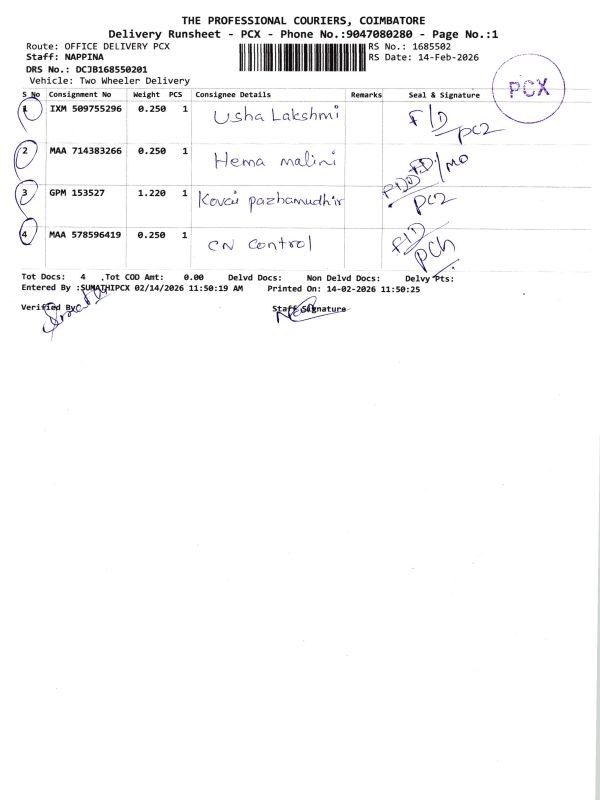 THE PROFESSIONAL COURIERS, COIMBATORE
Delivery Runsheet - PCX - Phone No.:9047080280 - Page No.:1
Route: OFFICE DELIVERY PCX
RS No.: 1685502
Staff: NAPPINA
RS Date: 14-Feb-2026
DRS No.: DCJB168550201
Vehicle: Two Wheeler Delivery
PCX
S No Consignment No Weight PCS Consignee Details Remarks Seal & Signature
1 IXM 509755296 0.250 1 Usha Lakshmi F/D
PCZ
2 MAA 714383266 0.250 1 Hema malini
3 GPM 153527 1.220 1 Kovai pazhamudhir
PCZ
4 MAA 578596419 0.250 1 CN Control F/D
Tot Docs: 4 ,Tot COD Amt: 0.00 Delvd Docs: Non Delvd Docs: Delvy Pts:
Entered By :SUMATHIPCX 02/14/2026 11:50:19 AM Printed On: 14-02-2026 11:50:25
Verified By
Staff Signature